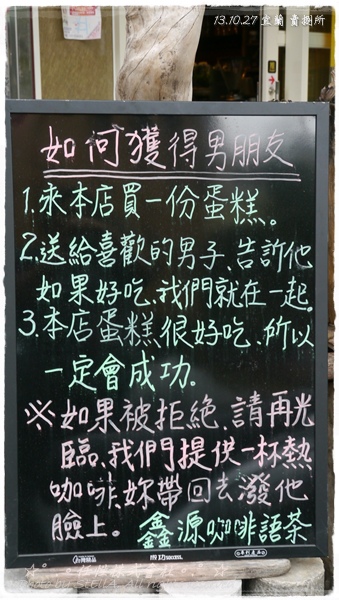 13.10.27 宜蘭 賣捌所
如何獲得男朋友
1.來本店買一份蛋糕。
2.送給喜歡的男子、告訴他
如果好吃、我們就在一起。
3.本店蛋糕、很好吃、所以
一定會成功.
※如果被拒絕、請再光
臨、我們提供一杯熱
咖啡、妳帶回去潑他
臉上。鑫源咖啡語茶
成功 SUCCESS.